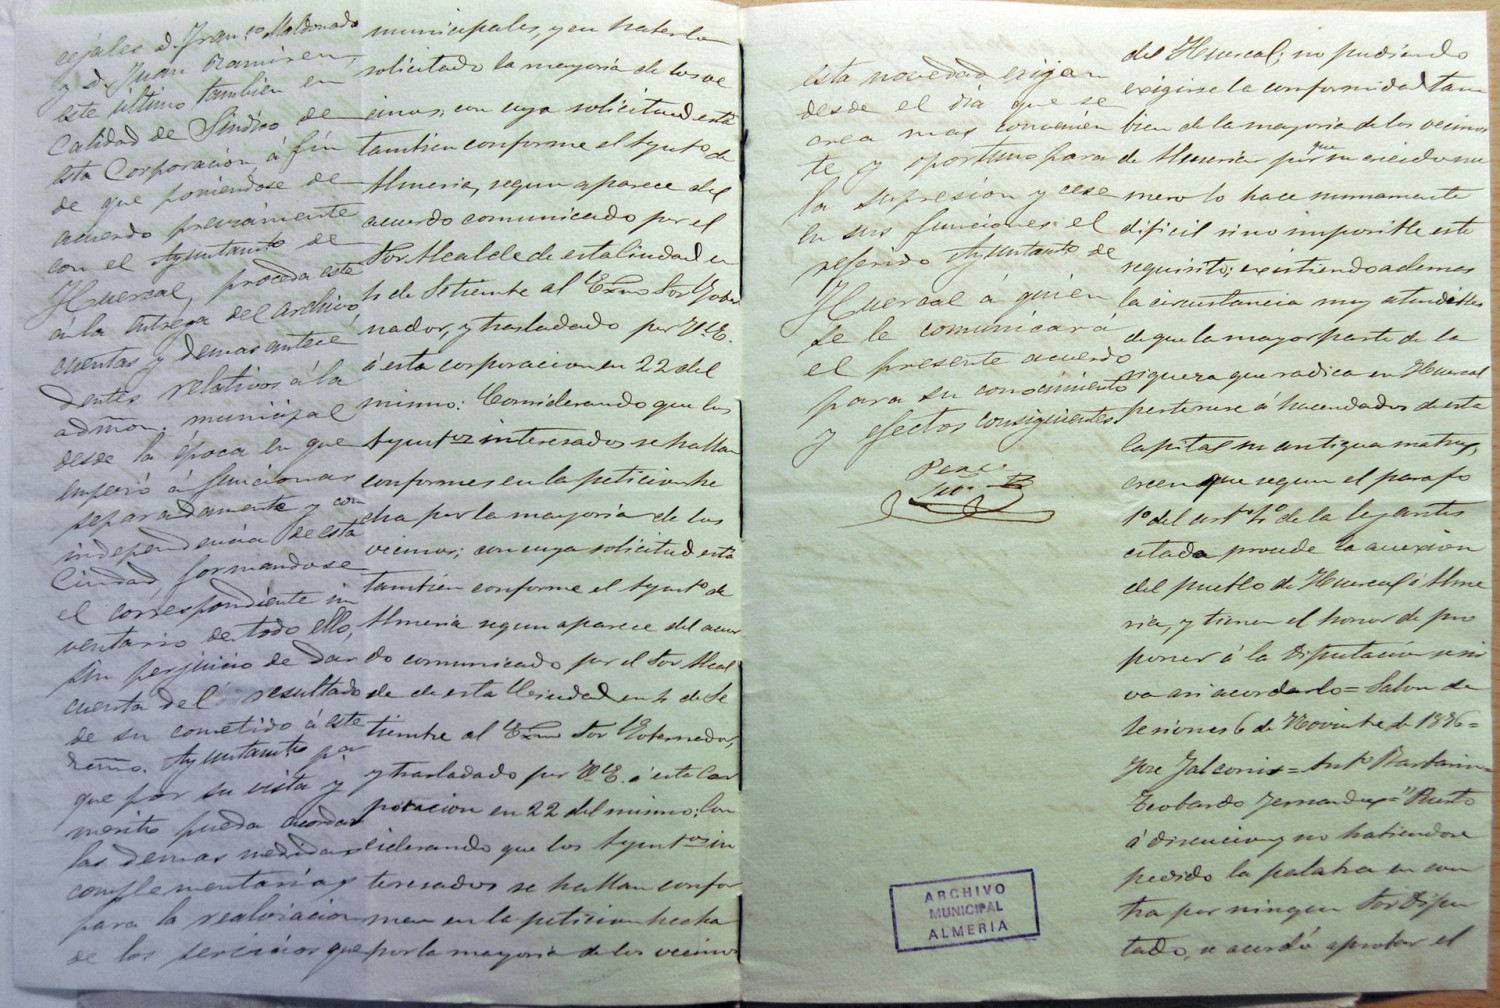 cejales D. Fran.co Maldonado
y D. Juan Ramirez,
este último tambien en
calidad de Sindico de
esta Corporación á fin
de que poniendose de
acuerdo previamente
con el Ayuntamto de
Huercal, proceda este
a la entrega del archivo,
cuentas y demas antece
dentes relativos á la
admon. municipal
desde la época en que
empezó á funcionar
separadamente y con
independencia de esta
Ciudad formandose
el correspondiente in
ventario de todo ello,
sin perjuicio de dar
cuenta del resultado
de su cometido á este
Ayuntamto pa
que por su vista y
merito pueda acordar
las demas medidas
complementarias
para la realizacion
de los servicios que
municipales, y en haberlo
solicitado la mayoria de los ve
cinos; con cuya solicitud está
tambien conforme el Ayunto de
Almeria, segun aparece del
acuerdo comunicado por el
Sor Alcalde de esta Ciudad en
4 de Setiembre al Exmo Sor Gober
nador, y trasladado por V.E.
á esta corporacion en 22 del
mismo: Considerando que los
Ayuntos interesados se hallan
conformes en la peticion he
cha por la mayoria de los
vecinos; con cuya solicitud está
tambien conforme el Ayunto de
Almeria segun aparece del acuer
do comunicado por el Sor Alcal
de de esta Ciudad en 4 de Se
tiembre al Exmo Sor Gobernador,
y trasladado por V.E. á esta Cor
poracion en 22 del mismo: Con
siderando que los Ayuntos in
teresados se hallan confor
mes en la peticion hecha
por la mayoria de los vecinos
esta novedad exijan
desde el dia que se
crea mas convenien
te y oportuno para
la supresion y cese
en sus funciones el
referido Ayuntamto de
Huercal á quien
se le comunicará
el presente acuerdo
para su conocimiento
y efectos consiguientes.
Perez
ARCHIVO
MUNICIPAL
ALMERIA
del Huercal; no pudiendo
exigirse la conformidad tam
bien de la mayoria de los vecinos
de Almeria porque su crecido nu
mero lo hace sumamente
dificil sino imposible este
requisito; existiendo ademas
la circunstancia muy atendible
de que la mayor parte de la
riqueza que radica en Huercal
pertenece á hacendados de esta
capital su antigua matriz,
creen que segun el parafo
1o del arto 4o de la ley antes
citada procede la anexion
del pueblo de Huercal á Alme
ria, y tienen el honor de pro
poner á la Diputación se sir
va asi acordarlo = Salon de
sesiones 6 de Noviembre de 1876 =
Jose Falconis = Anto Barbarin =
Teobardo Fernandez = "Puesto
á discucion y no habiendose
pedido la palabra en con
tra por ningun Sor Dipu
tado, se acordó aprobar el